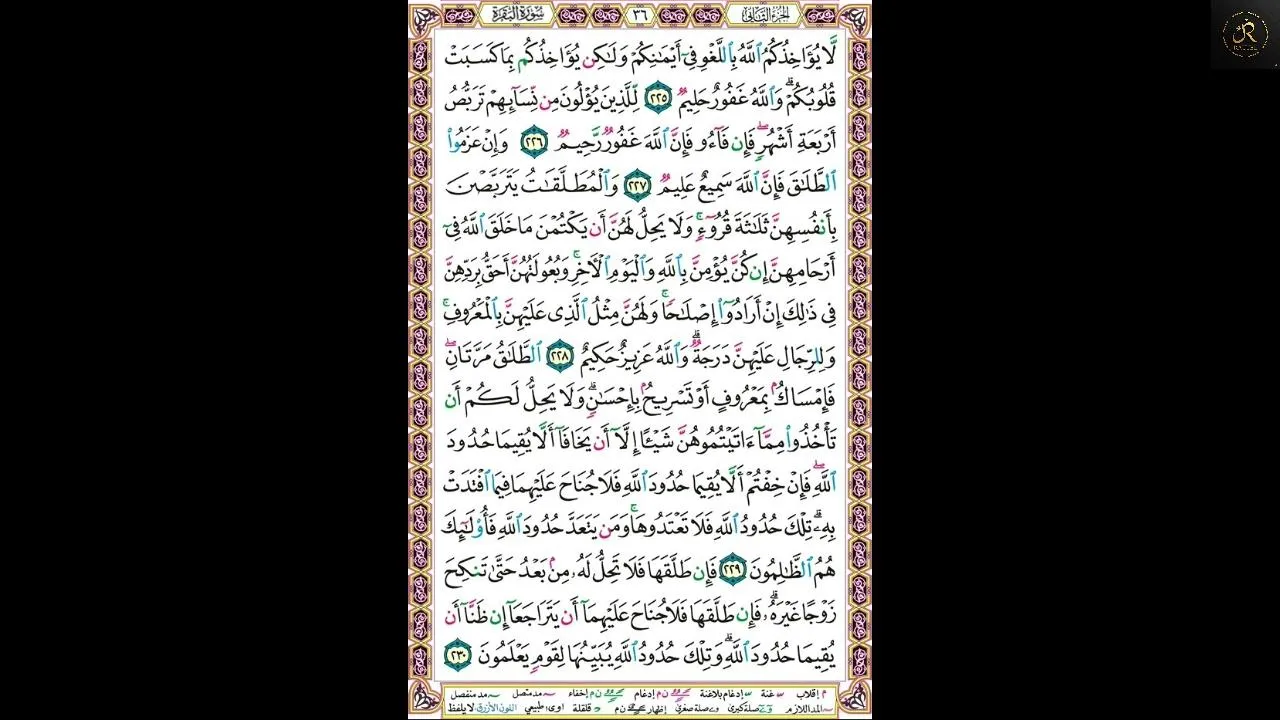 الجزء الثاني ٣٦ سورة البقرة
لَّا يُؤَاخِذُكُمُ ٱللَّهُ بِٱللَّغْوِ فِىٓ أَيْمَـٰنِكُمْ وَلَـٰكِن يُؤَاخِذُكُم بِمَا كَسَبَتْ
قُلُوبُكُمْ ۗ وَٱللَّهُ غَفُورٌ حَلِيمٌ ٢٢٥ لِّلَّذِينَ يُؤْلُونَ مِن نِّسَآئِهِمْ تَرَبُّصُ
أَرْبَعَةِ أَشْهُرٍ ۖ فَإِن فَآءُو فَإِنَّ ٱللَّهَ غَفُورٌ رَّحِيمٌ ٢٢٦ وَإِنْ عَزَمُوا۟
ٱلطَّلَـٰقَ فَإِنَّ ٱللَّهَ سَمِيعٌ عَلِيمٌ ٢٢٧ وَٱلْمُطَلَّقَـٰتُ يَتَرَبَّصْنَ
بِأَنفُسِهِنَّ ثَلَـٰثَةَ قُرُوٓءٍ ۚ وَلَا يَحِلُّ لَهُنَّ أَن يَكْتُمْنَ مَا خَلَقَ ٱللَّهُ فِىٓ
أَرْحَامِهِنَّ إِن كُنَّ يُؤْمِنَّ بِٱللَّهِ وَٱلْيَوْمِ ٱلْـَٔاخِرِ ۚ وَبُعُولَتُهُنَّ أَحَقُّ بِرَدِّهِنَّ
فِى ذَٰلِكَ إِنْ أَرَادُوٓا۟ إِصْلَـٰحًا ۚ وَلَهُنَّ مِثْلُ ٱلَّذِى عَلَيْهِنَّ بِٱلْمَعْرُوفِ ۚ
وَلِلرِّجَالِ عَلَيْهِنَّ دَرَجَةٌ ۗ وَٱللَّهُ عَزِيزٌ حَكِيمٌ ٢٢٨ ٱلطَّلَـٰقُ مَرَّتَانِ ۖ
فَإِمْسَاكٌۢ بِمَعْرُوفٍ أَوْ تَسْرِيحٌۢ بِإِحْسَـٰنٍ ۗ وَلَا يَحِلُّ لَكُمْ أَن
تَأْخُذُوا۟ مِمَّآ ءَاتَيْتُمُوهُنَّ شَيْـًٔا إِلَّآ أَن يَخَافَآ أَلَّا يُقِيمَا حُدُودَ
ٱللَّهِ ۖ فَإِنْ خِفْتُمْ أَلَّا يُقِيمَا حُدُودَ ٱللَّهِ فَلَا جُنَاحَ عَلَيْهِمَا فِيمَا ٱفْتَدَتْ
بِهِۦ ۗ تِلْكَ حُدُودُ ٱللَّهِ فَلَا تَعْتَدُوهَا ۚ وَمَن يَتَعَدَّ حُدُودَ ٱللَّهِ فَأُو۟لَـٰٓئِكَ
هُمُ ٱلظَّـٰلِمُونَ ٢٢٩ فَإِن طَلَّقَهَا فَلَا تَحِلُّ لَهُۥ مِنۢ بَعْدُ حَتَّىٰ تَنكِحَ
زَوْجًا غَيْرَهُۥ ۗ فَإِن طَلَّقَهَا فَلَا جُنَاحَ عَلَيْهِمَآ أَن يَتَرَاجَعَآ إِن ظَنَّآ أَن
يُقِيمَا حُدُودَ ٱللَّهِ ۗ وَتِلْكَ حُدُودُ ٱللَّهِ يُبَيِّنُهَا لِقَوْمٍ يَعْلَمُونَ ٢٣٠
م إقلاب غنة إدغام بلاغنة ن م إدغام ن م إخفاء مد متصل مد منفصل
المد اللازم صلة كبرى صلة صغرى إظهار ن م قلقلة اوى: طبيعي اللون الأزرق لا يلفظ